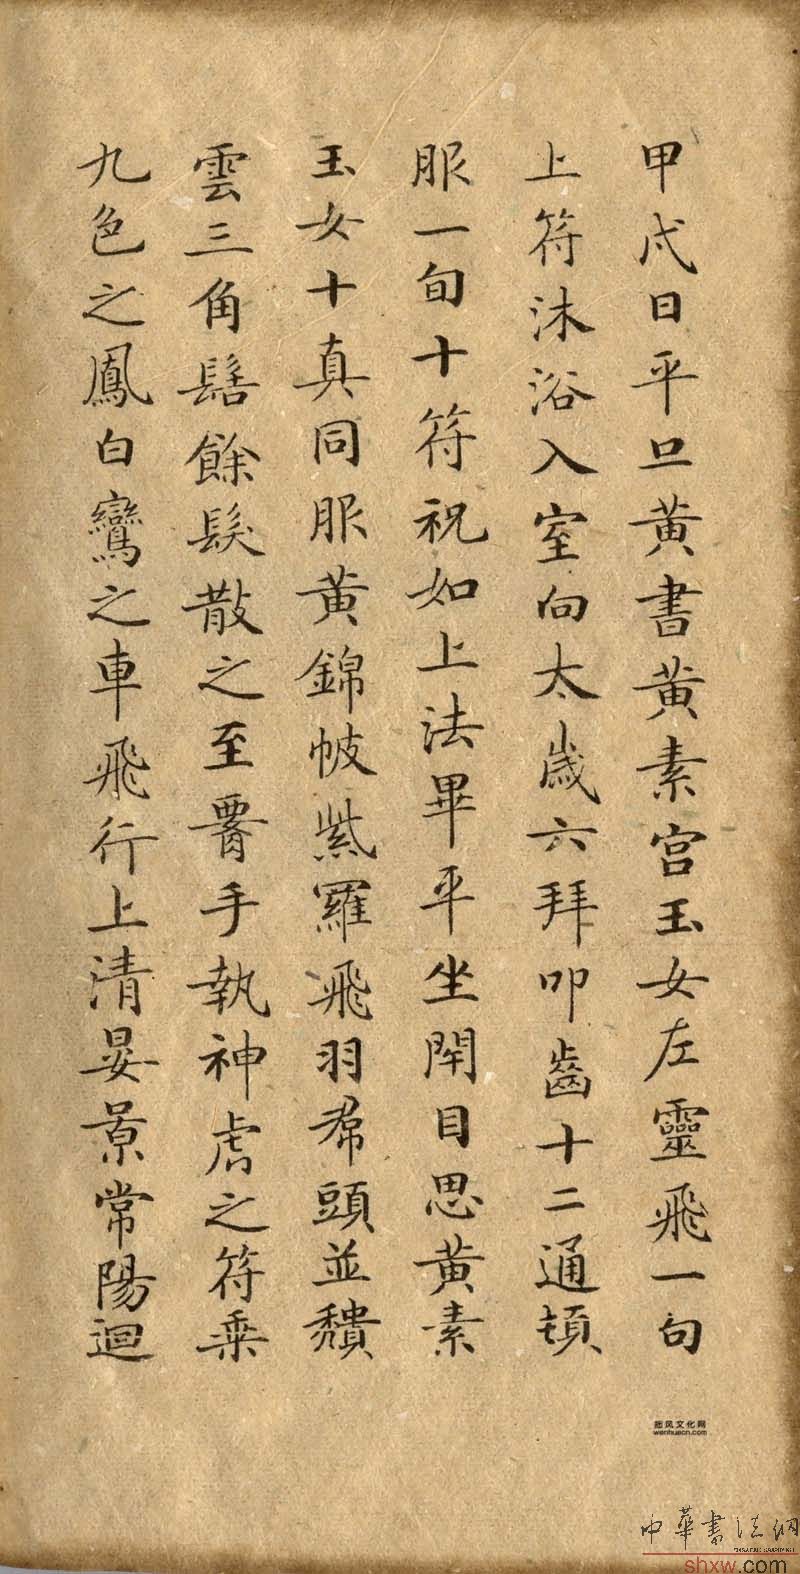 甲戌日平旦黄書黄素宫玉女左靈飛一句
上符沐浴入室向太歲六拜叩齒十二通頓
服一旬十符祝如上法畢平坐閇目思黄素
玉女十真同服黄錦帔紫羅飛羽帬頭並頹
雲三角髻餘髮散之至腰手執神虎之符乘
九色之鳳白鸞之車飛行上清晏景常陽迴
拙风文化网
wenhuacn.com
中華書法網
shxw.com